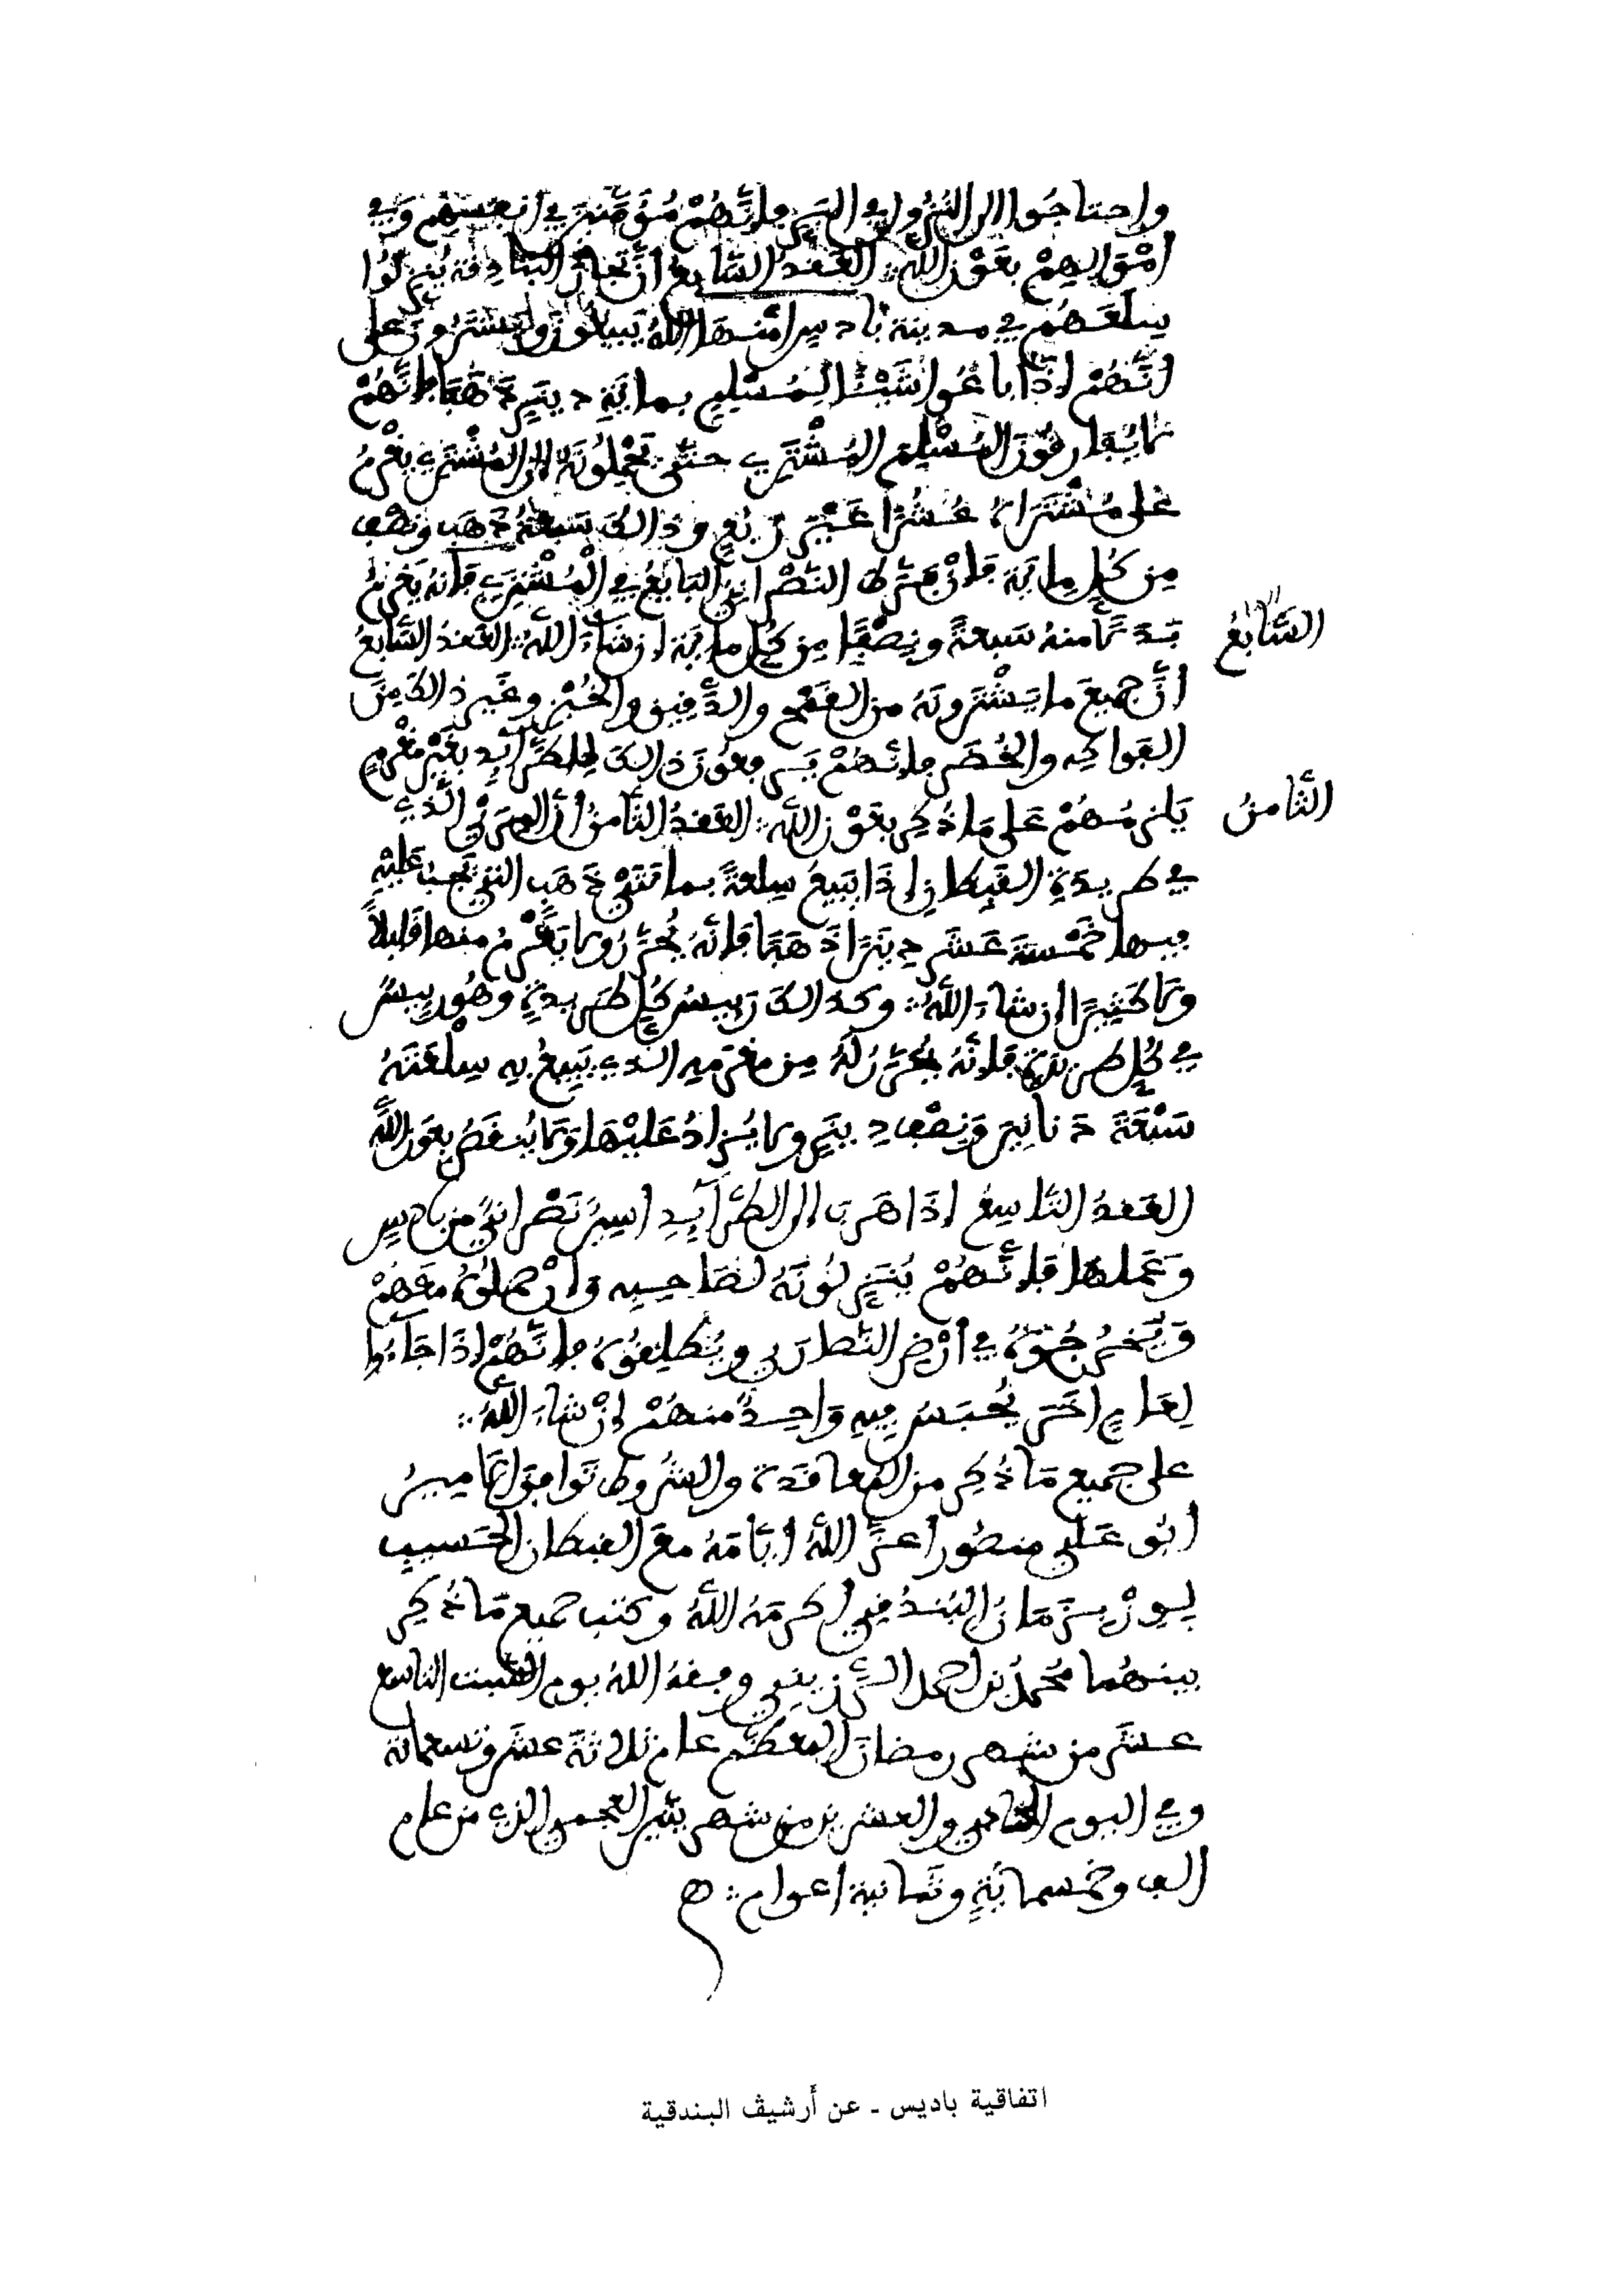 واحتاجوا الى النزول في البر فإنهم مؤمنين في أنفسهم وفي
أموالهم بعون الله العقد السابع ان تجار البنادقة ينزلوا
سلعهم في مدينة بادس امنها الله يبيعون ويشترون على
أنهم إذا باعوا شيئا لمسلم بمائة دينير ذهبا فإنهم
لا يفارقون المسلم المشتري حتى يحملونه الى المشتري يغرم
على مشتراه عشرا غير ربع وذالك سبعة ذهب ونصف
من كل مائة فإن فرط النصراني البايع في المشتري فإنه يغرم
بدلا منه سبعة ونصفا من كل مائة ان شاء الله العقد السابع
السابع
أن جميع ما يشترونه من القمح والدقيق والخبز وغير ذالك من
الفواكه والخضر فإنهم يرفعون ذالك للطرايد بغير مغرم
يلزمهم على ما ذكر بعون الله العقد الثامن أن الذي
الثامن
في طريدة القبطان إذا يبيع سلعة بمائتي ذهب التي تجب عليه
فيها خمسة عشر دينرا ذهبا فإنه يحرر ولا يغرم منها قليلا
ولا كثيرا إن شاء الله وكذالك رييس كل طريدة وهو رييس
في كل طريدة فإنه يحرر له من مغرمه الذي يبيع به سلعته
سبعة دنانير ونصف دينير ولا يزاد عليها ولا ينقص بعون الله
العقد التاسع إذا هرب الى الطرايد اسير نصراني من بادس
وعملها فإنهم ينزلونه لصاحبه وإن حملوه معهم
ويخرجوه في أرض النصارى ويطلقوه فإنهم إذا جاءوا
لعام اخر يحبس فيه واحد منهم إن شاء الله
على جميع ما ذكر من المعاقدة والشروط توافق الامير
ابو علي منصور أعز الله أيامه مع القبطان الحسيب
البندقي اكرمه الله وكتب جميع ما ذكر
بينهما محمد بن احمد وفقه الله يوم السبت التاسع
عشر من شهر رمضان المعظم عام ثلاثة عشر وتسعمائة
وفي اليوم والعشرين من شهر ينير العجمي الذي من عام
الف وخمسمائة وثمانية اعوام
اتفاقية باديس - عن أرشيف البندقية